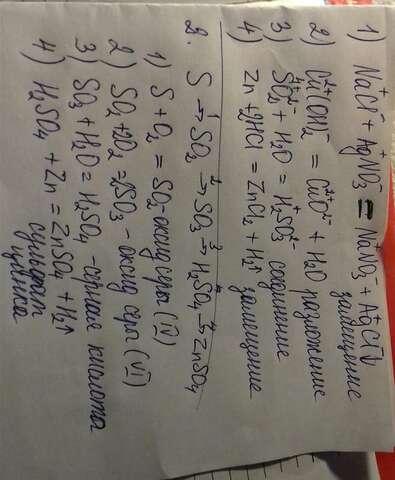 1) NaCl + AgNO₃ = NaNO₃ + AgCl↓
замещение
2) Cu(OH)₂ = CuO + H₂O разложение
3) SO₂ + H₂O = H₂SO₃ соединение
4) Zn + 2HCl = ZnCl₂ + H₂↑ замещение
2. S →¹ SO₂ →² SO₃ →³ H₂SO₄ →⁴ ZnSO₄
1) S + O₂ = SO₂ - оксид серы (IV)
2) SO₂ + O₂ = 2SO₃ - оксид серы (VI)
3) SO₃ + H₂O = H₂SO₄ - серная кислота
4) H₂SO₄ + Zn = ZnSO₄ + H₂↑
сульфат
цинка